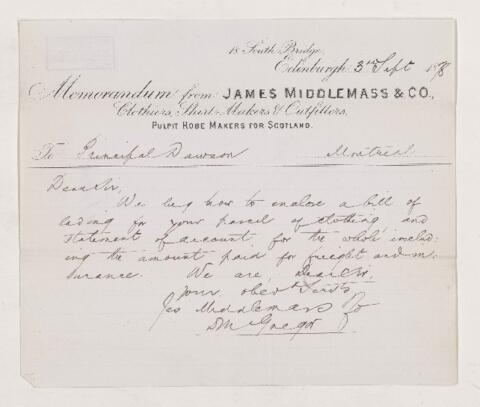 18 South Bridge,
Edinburgh, 3rd Sept 1878
Memorandum from JAMES MIDDLEMASS & CO.,
Clothiers, Shirt-Makers & Outfitters,
PULPIT ROBE MAKERS FOR SCOTLAND.
To Principal Dawson Montreal
Dear Sir,
We beg now to enclose a bill of
lading for your parcel of clothing and
statement of account for the whole includ-
ing the amount paid for freight and in-
surance. We are, Dear Sir,
Your obedt Servts
Jas Middlemass & Co
D McGregor